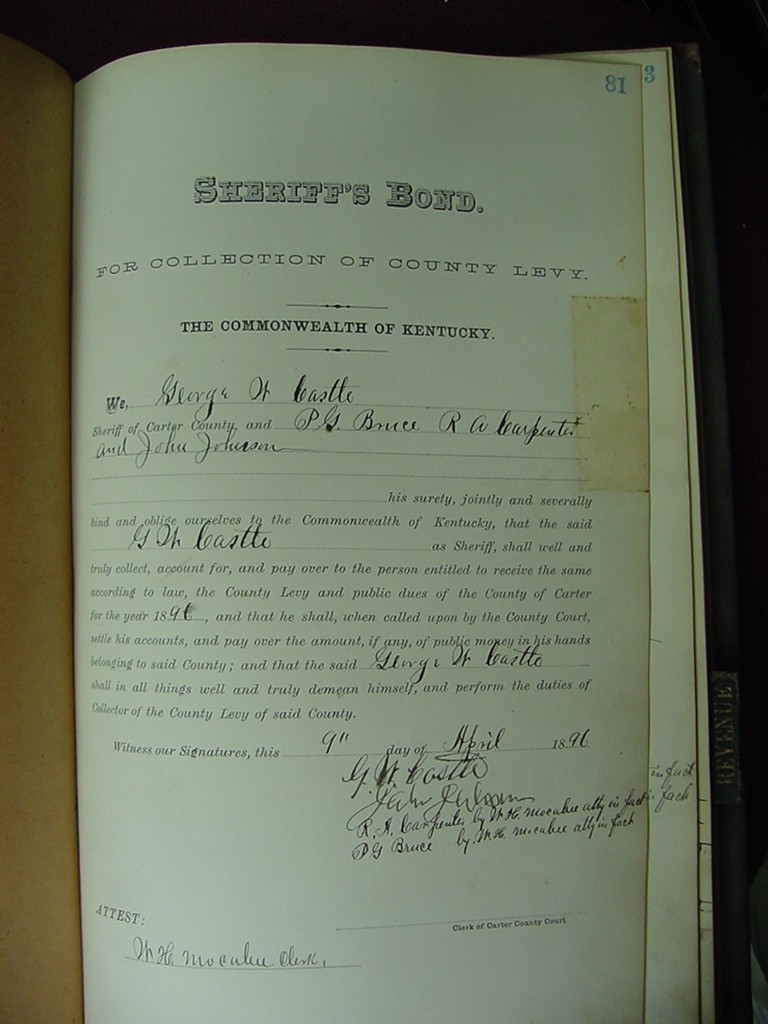 81
3
SHERIFF'S BOND.
FOR COLLECTION OF COUNTY LEVY.
THE COMMONWEALTH OF KENTUCKY.
We, George W Castle
Sheriff of Carter County, and P.G. Bruce R A Carpenter
and John Johnson
his surety, jointly and severally
bind and oblige ourselves to the Commonwealth of Kentucky, that the said
G W Castle as Sheriff, shall well and
truly collect, account for, and pay over to the person entitled to receive the same
according to law, the County Levy and public dues of the County of Carter
for the year 1896, and that he shall, when called upon by the County Court,
settle his accounts, and pay over the amount, if any, of public money in his hands
belonging to said County; and that the said George W Castle
shall in all things well and truly demean himself, and perform the duties of
Collector of the County Levy of said County.
Witness our Signatures, this 9" day of April 1896
G. W. Castle
John Johnson
in fact
R. A. Carpenter by W.H. mocabee atty in fact
in fact
P G Bruce by W.H. mocabee atty in fact
ATTEST:
Clerk of Carter County Court.
W H mocabee Clerk.
REVENUE